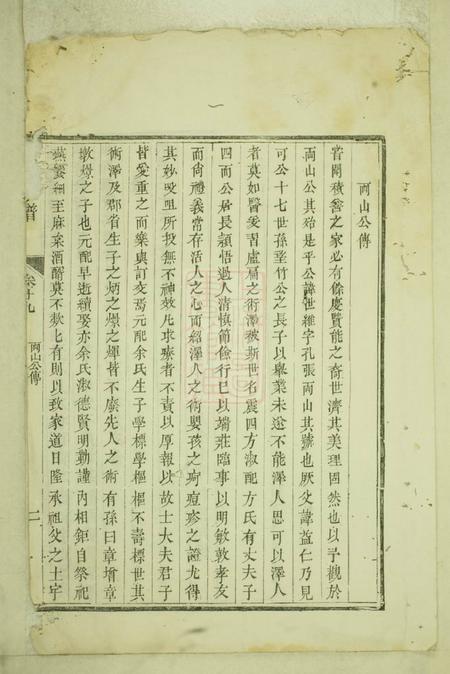 兩山公傳
嘗聞積善之家必有餘慶賢能之裔世濟其美理固然也以予觀於
兩山公其殆是乎公諱世維字孔張兩山其號也厥父諱益仁乃見
可公十七世孫莖竹公之長子以舉業未逮不能澤人思可以澤人
者莫如醫爰習盧扁之術澤被斯世名震四方淑配方氏有丈夫子
四而公居長頴悟過人清慎節儉行已以端莊臨事以明敏敦孝友
而尚禮義常存活人之心而紹澤人之術嬰孩之痾痘疹之證尤得
其妙㕮咀所投無不神效凡求療者不責以厚報以故士大夫君子
皆愛重之而樂與訂交焉元配余氏生子學標學樞樞不壽標世其
術澤及郡省生子之炳之燝之煇皆不廢先人之術有孫曰章增章
墩燝之子也元配早逝續娶亦余氏淑德賢明勤謹內相鉅自祭祀
燕饗細至麻枲酒醑莫不敕上有則以致家道日隆承祖父之土宇
譜
卷十九
兩山公傳
二